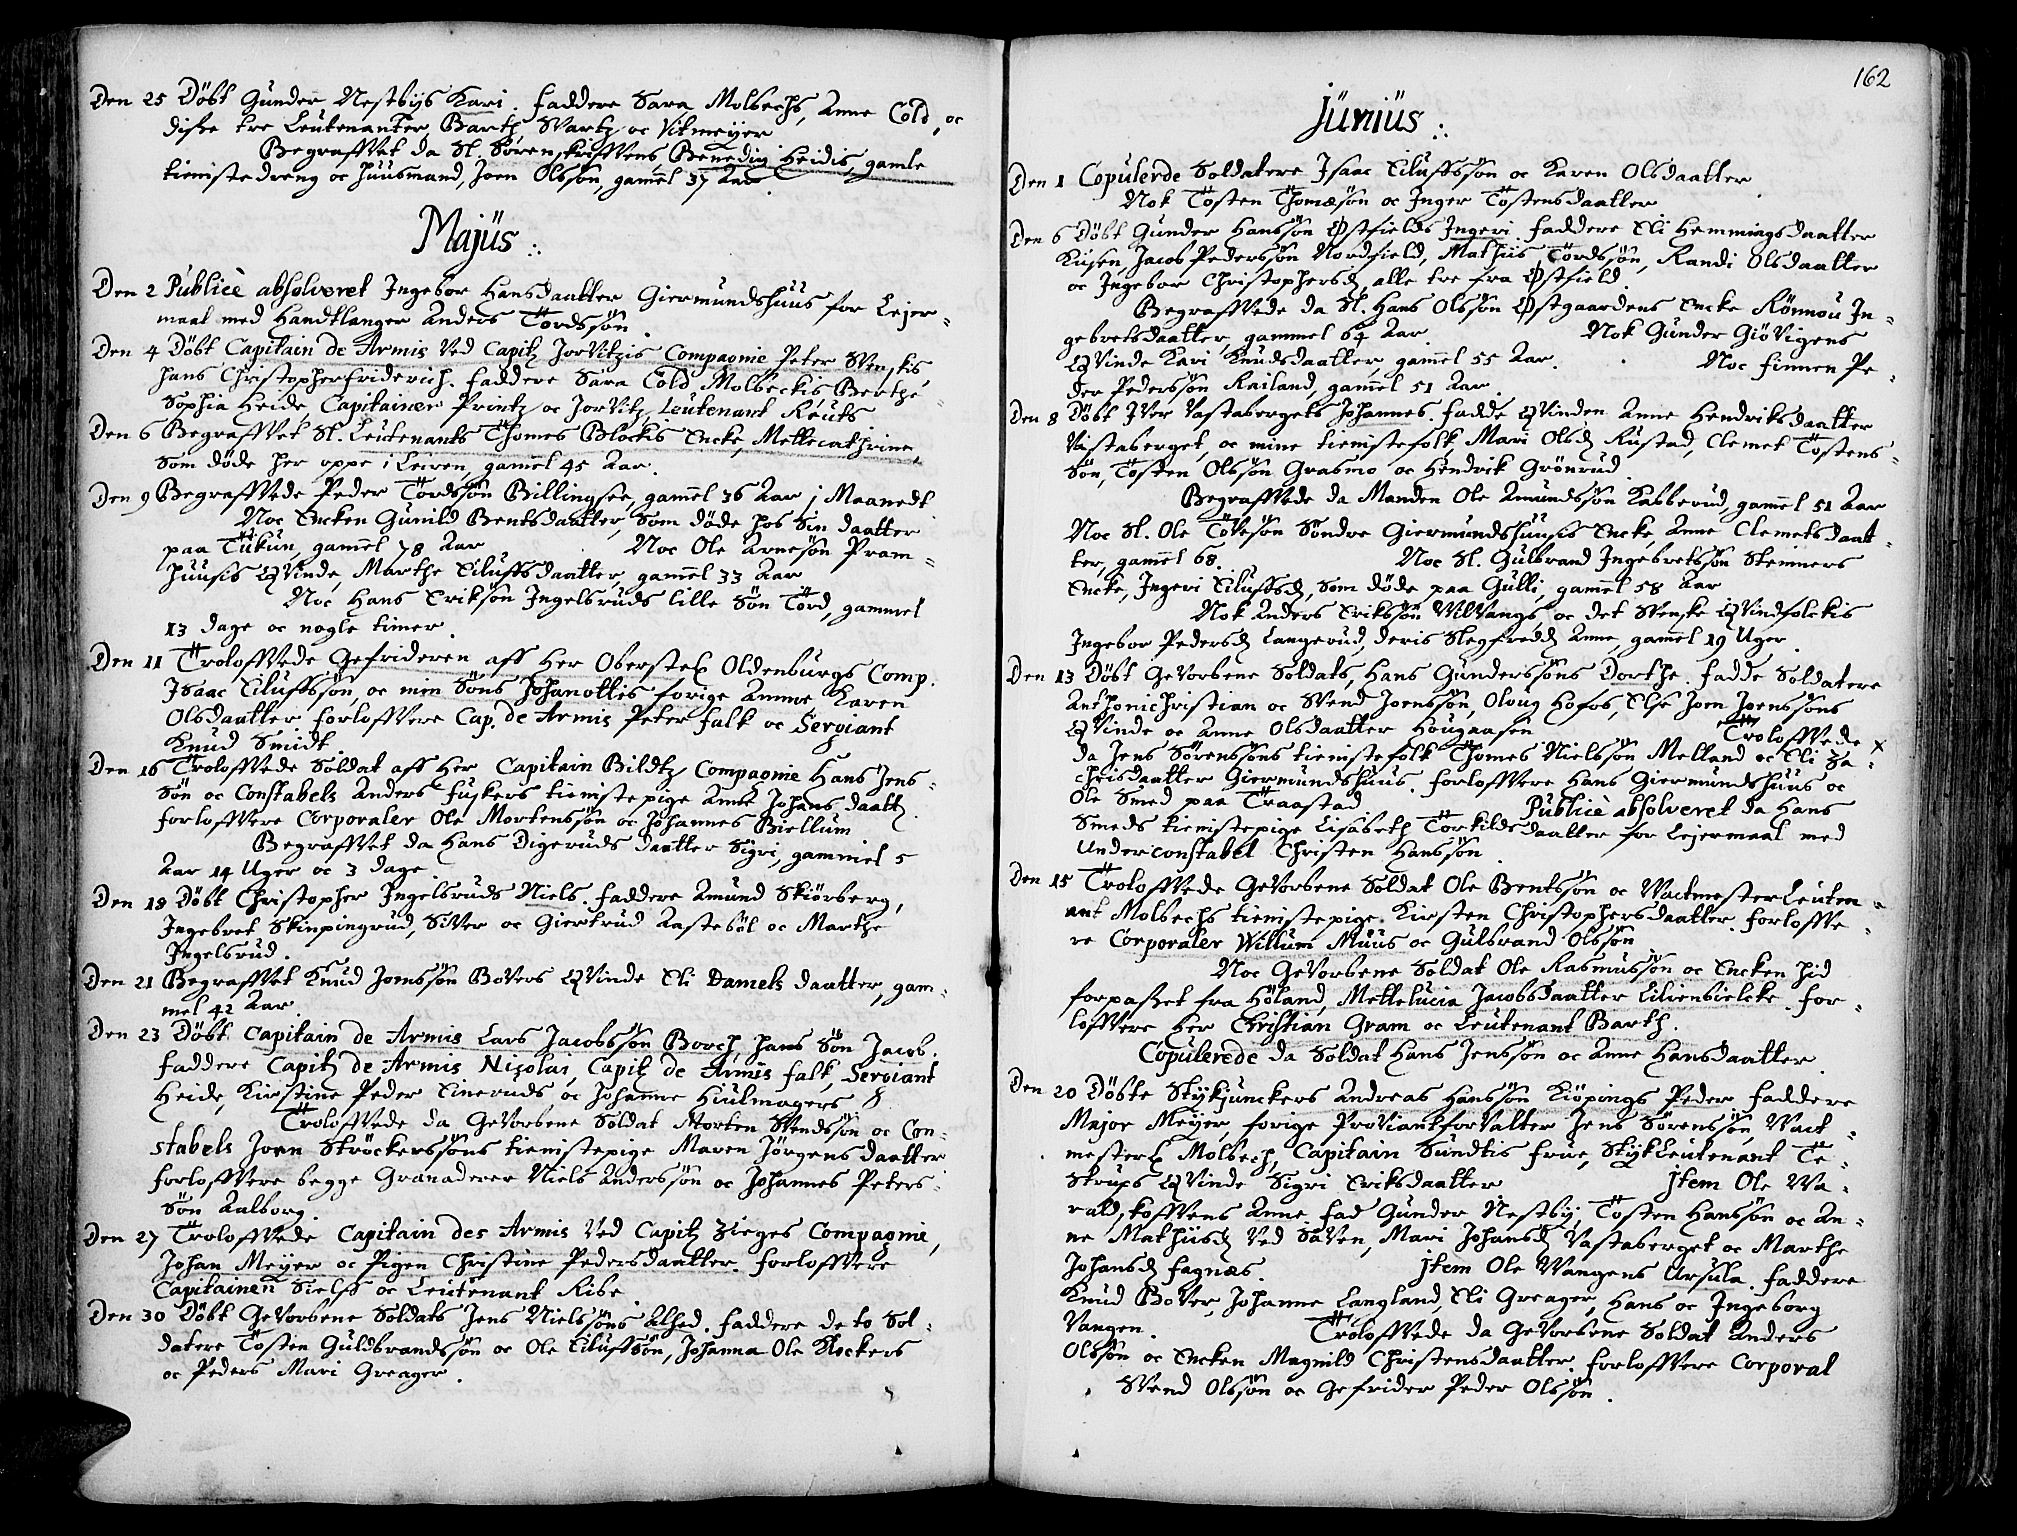 Den 25 Döbt Gunder Nestbÿs Kari. Faddere Sara Molbechs, Anne Cold, oc
disse tre Leutenanter, Barth, Svartz oc Vitmeÿer
Begraffvet da Sl. Sörenskriffvens Heidis, gamle
tienistedreng oc Huusmand, Joen Olssön, gamel 37 Aar.
Majüs
Den 2 Publicè absolveret Ingebor Hansdaatter Giermundshuus for Lejer=
maal med Handtlanger Anders Tordssön.
Den 4 Döbt Capitain de Armis ved Capit. JorVitzis Compagnie Peter Svenskis
Hans Christopherfriderich. Faddere Sara Cold, Molbeckis Berthe=
Sophia Heide, Capitainer Printz oc JorVitz, Leutenant Reuts
Den 6 Begraffvet Sl. Leutenants Thomes Blockis Encke, Mettecathrine,
som döde her oppe i Leiren, gamel 45 Aar.
Den 9 Begraffvede Peder Tordssön Billingsee, gamel 36 Aar 1 Maanedt
Noc Encken Gunild Bentsdaatter, som döde hos sin daatter
paa Tukun, gamel 78 Aar Noc Ole Arnesön Pram=
huusis Qvinde, Marthe Eiluffsdaatter, gamel 33 Aar
Noc Hans Eriksön Ingelsruds lille Sön Tord, gammel
13 dage oc nogle timer.
Den 11 Troloffvede Gefrideren aff Her Oberstel Oldenburgs Comp.
Isaac Eiluffssön, oc min Söns Johanottes forige Amme Karen
Olsdaatter. Forloffvere Cap. de Armis Peter Falk oc Sergiant
Knud Smidt
Den 16 Troloffvede Soldat aff Her Capitain Bildtz Compagnie Hans Jens=
sön oc Constabels Anders Fuskers tienistepige Anne Johansdaatt.
Forloffvere Corporaler Ole Mortenssön oc Johannes Biellum
Begraffvet da Hans Digeruds daatter Sigri, gammel 5
Aar 14 Uger oc 3 dage
Den 18 Döbt Christopher Ingelsruds Niels. Faddere Amund Skiörberg,
Ingebret Skinpingrud, Siver oc Giertrud Aasteböl oc Marthe
Ingelsrud.
Den 21 Begraffvet Knud Jonssön Bovers Qvinde Eli Daniels daatter, gam=
mel 42 Aar
Den 23 Döbt Capitain de Armis Lars Jacobssön Borch, hans Sön Jacob.
Faddere Capit. de Armis Nicolai, Capit. de Armis Falk, Sergiant
Heide, Kirstine Peder Eineruds oc Johanne Hiulmagers
Troloffvede da Gevorbene Soldat Morten Svendssön oc Con=
stabels Joen Ströckerssöns tienistepige Maren Jörgensdaatter
Forloffvere begge Granaderer Niels Anderssön oc Johannes Peters=
sön Aalborg.
Den 27 Troloffvede Capitain des Armis ved Capit. Zieges Compagnie,
Johan Meÿer oc Pigen Christine Pedersdaatter. Forloffvere
Capitainen sielff oc Leutenant Ribe
Den 30 Döbt Gevorbene Soldats Jens Nielssöns Alhed. Faddere de to Sol=
datere Tosten Guldbrandssön oc Ole Eiluffssön, Johanna Ole Klockers
oc Peders Mari Greager.
162
Junius
Den 1 Copulerde Soldatere Isaac Eiluffssön oc Karen Olsdaatter
Nok Tosten Thomæsön oc Inger Tostensdaatter
Den 6 Döbt Gunder Hanssön Østfields Ingeri. Faddere Eli Hemmingsdaatter
Kusen, Jacob Pederssön Nordfield, Mathiis Tordssön, Randi Olsdaatter
oc Ingebor Christophersd. alle tre fra Østfield.
Begraffvede da Sl. Hans Olssön Østgaardens Encke Rönnou In=
gebretsdaatter, gammel 64 Aar. Nok Gunder Giövigens
Qvinde Kari Knudsdaatter, gamel 55 Aar. Noc Finnen Pe=
der Pederssön Railand, gamel 51 Aar.
Den 8 Döbt Iver Vastabergets Johannes. Fadde Qvinden Anne Hendriksdaatter
Vastaberget, oc mine tienistefolk, Mari Olsd. Rustad, Clemet Tostens=
sön, Tosten Olssön Grasmo oc Hendrik Grönrud.
Begraffvede da Manden Ole Amundssön Kabberud, gamel 51 Aar
Noc Sl. Ole Tovesön Söndre Giermundshuusis Encke, Anne Clemetsdaat=
ter, gamel 68. Noc Sl. Gulbrand Ingebretssön Skinners
Encke, Ingeri Eiluffsd. som döde paa Gulli, gamel 58 Aar
Nok Anders Erikssön Vilvangs oc det svenske Qvindfolckis
Ingebor Pedersd. Langerud, deris Slegfredd. Anne, gamel 19 Uger.
Den 13 Döbt Gevorbene Soldats, Hans Gunderssöns Dorthe. Fadde Soldatere
Anthonichristian oc Svend Joenssön, Oloug Hofos, Else Joen Joenssöns
Qvinde oc Anne Olsdaatter Hougaasen Troloffvede x
da Jens Sörenssöns tienistefolk Thomes Nielssön Melland oc Eli Za=
chrisdaatter Giermundshuus. Forloffvere Hans Giermundshuus oc
Ole Smed paa Traastad Publicè absolveret da Hans
Smeds tienistepige Lisabeth Torkildsdaatter for Lejermaal med
Underconstabel Christen Hanssön.
Den 15 Troloffvede Gevorbene Soldat Ole Bentssön oc WactmesterLeuten=
ant Molbechs tienistepige Kirsten Christophersdaatter. Forloffve=
re Corporaler Willum Muus oc Gulbrand Olssön
Noc Gevorbene Soldat Ole Rasmussön oc Encken hid
forpasset fra Höland, Mettelucia Jacobsdaatter Lilienbielcke. For=
loffvere Her Christian Gram oc Leutenant Barth.
Copulerede da Soldat Hans Jenssön oc Anne Hansdaatter.
Den 20 Döbte Stykjunckers Andreas Hanssön Kiöpings Peder. Faddere
Major Meÿer, forige Proviantforvalter Jens Sörenssön, Wact=
mesterl. Molbech, Capitain Sundtis Frue, StykLeutenant Te=
Strups Qvinde Sigri Eriksdaatter Item Ole Va=
rald,skoffvens Anne. Fad Gunder Nestbÿ, Tosten Hanssön oc An=
ne Mathiisd. ved Saven, Mari Johansd. Vastaberget oc Marthe
Johansd. Fagnæs. Item Ole Vangens Ursula. Faddere
Knud Bover, Johanne Langland, Eli Greager, Hans oc Ingeborg
Vangen. Troloffvede da Gevorbene Soldat Anders
Olssön oc Encken Magnild Christensdaatter. Forloffvere Corporal
Svend Olssön oc Gefrider Peder Olssön.